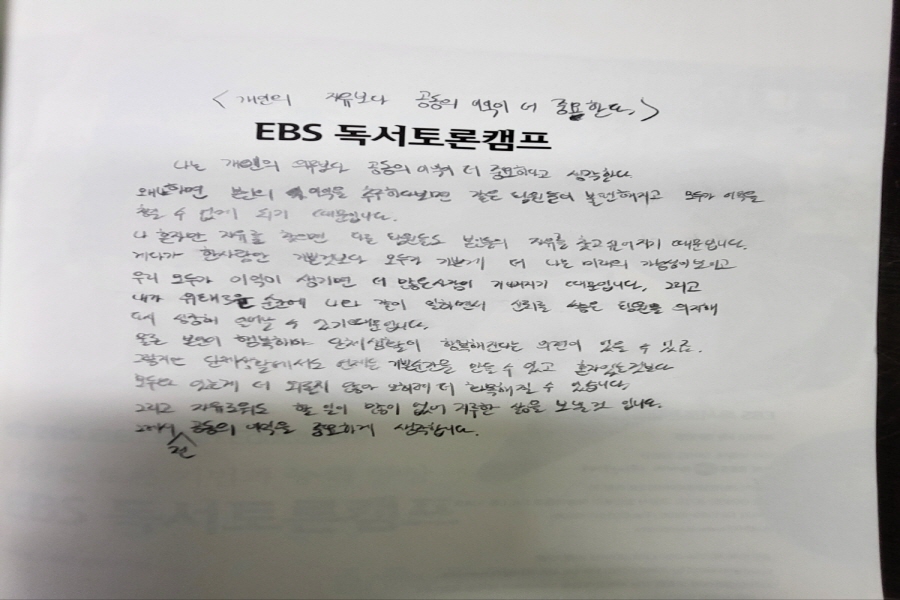 <개인의 자유보다 공동의 이익이 더 중요한다.>
EBS 독서토론캠프
나는 개인의 자유보다 공동의 이익이 더 중요하다고 생각한다.
왜냐하면 본인의 이익을 추구하다보면 같은 팀원들이 불편해지고 모두가 이익을
얻을 수 없게 되기 때문입니다.
나 혼자만 자유를 찾으면 다른 팀원들도 본인들의 자유를 찾고 싶어지기 때문입니다.
게다가 한사람만 기쁜것보다 모두가 기쁜게 더 나은 미래의 가능성이 보이고
우리 모두가 이익이 생기면 더 많은 사람이 기뻐지기 때문입니다. 그리고
내가 위태로울 순간에 나와 같이 일하면서 신뢰를 쌓은 팀원을 의지해
다시 일어날 수 있기때문입니다.
물론 본인이 행복해야 단체생활이 행복해진다는 의견이 있을 수 있죠.
그렇지만 단체생활에서도 언제든 기쁜순간을 만들 수 있고 혼자있는것보다
모두와 있는게 더 외롭지 않아 오히려 더 행복해질 수 있습니다.
그리고 자유로워도 할 일이 많이 없어 지루한 삶을 보낼것 입니다.
그래서 전 공동의 이익을 중요하게 생각합니다.